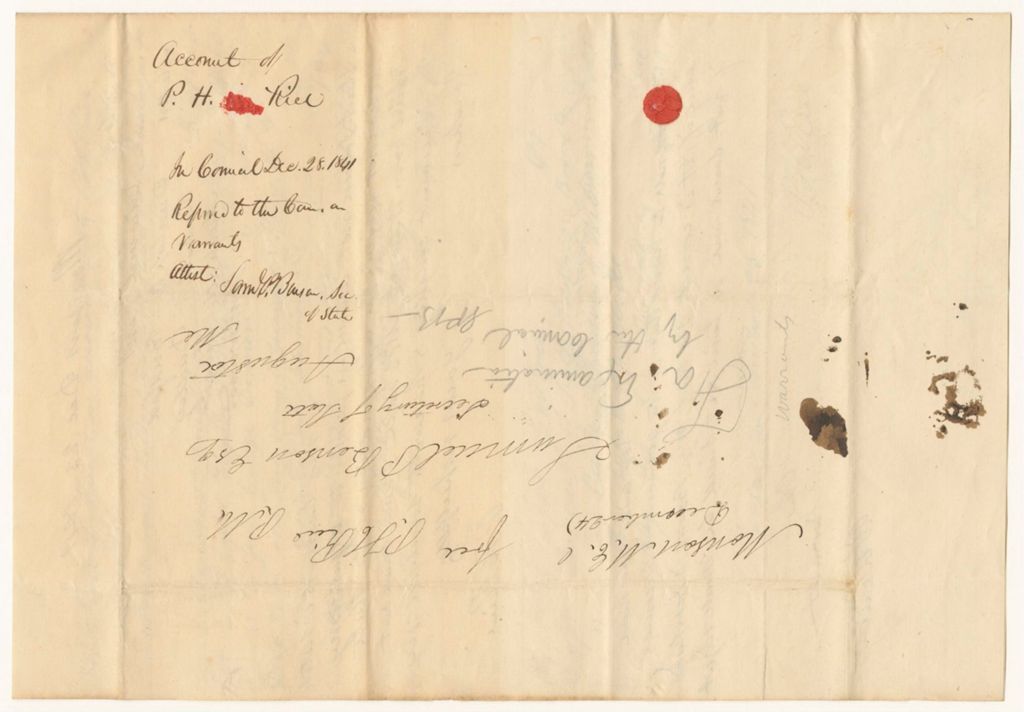 Account of
P. H. Rice
In Council Dec. 28. 1841
Referred to the Com. on
Warrants
Attest: Saml P. Benson. Sec.
of State
Monson Me.
December 24
free P. H. Rice P.M.
Samuel P Benson Esq
Secretary of State
Augusta
Me
For Examination
by the Council
SPB
Warrants